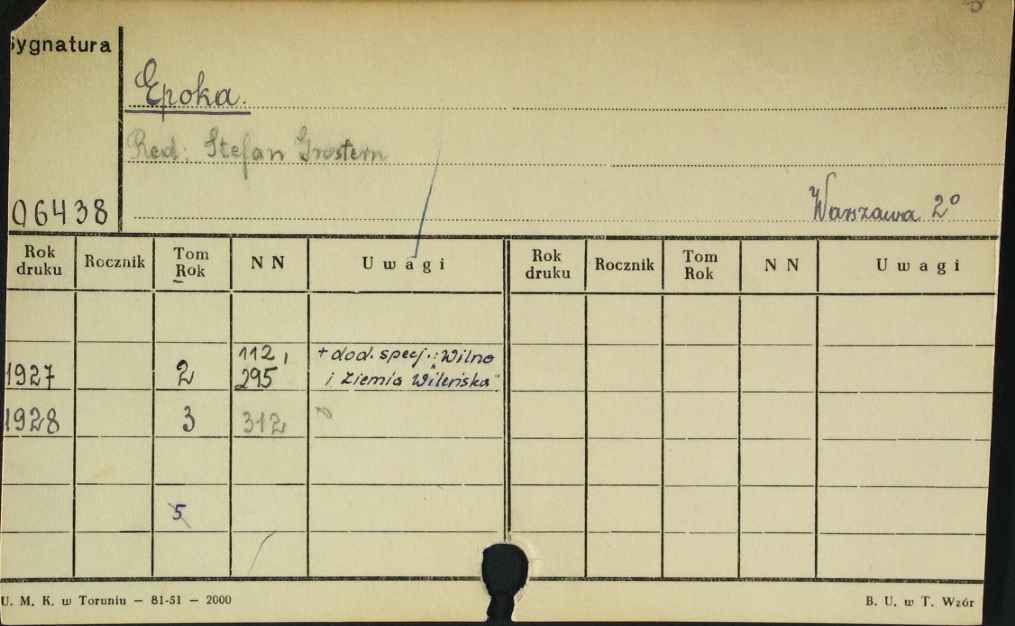 Sygnatura
Epoka.
Red: Stefan Grostern
06438
Warszawa 2°
Rok druku Rocznik Tom Rok N N Uwagi Rok druku Rocznik Tom Rok N N Uwagi
1927 2 112, 295 + dod. specj.: "Wilno i Ziemia Wileńska"
1928 3 312
5
U. M. K. w Toruniu — 81-51 — 2000
B. U. w T. Wzór